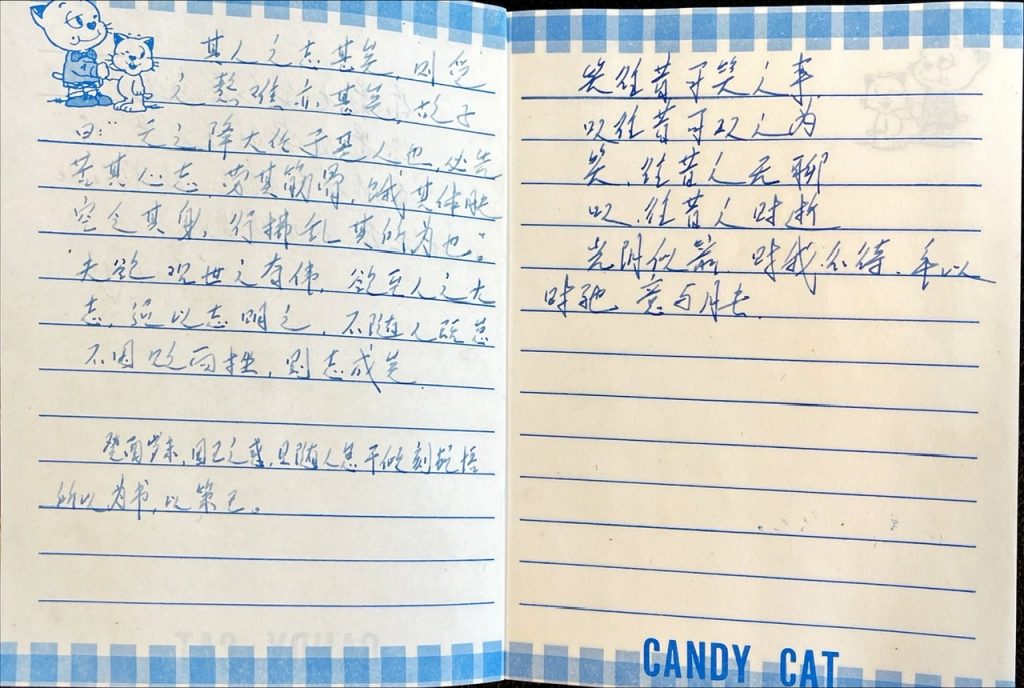 其人之志甚岩，则经
之熬难亦甚岩，故子
曰：“天之降大任于其人也，必先
苦其心志，劳其筋骨，饿其体肤
空乏其身，行拂乱其所为也。”
夫欲观世之奇伟，欲至人之大
志，须以志明之，不随人既怠
不因路而挫，则志成岩
癸酉岁末，因己之惑，且随人怠 刻提悟
所以为书，以策己。
笑往昔可笑之事
叹往昔可叹之为
笑，往昔人无聊
叹，往昔人时逝
光阴似箭，时我不待，年以
时驰，意与月去
CANDY CAT